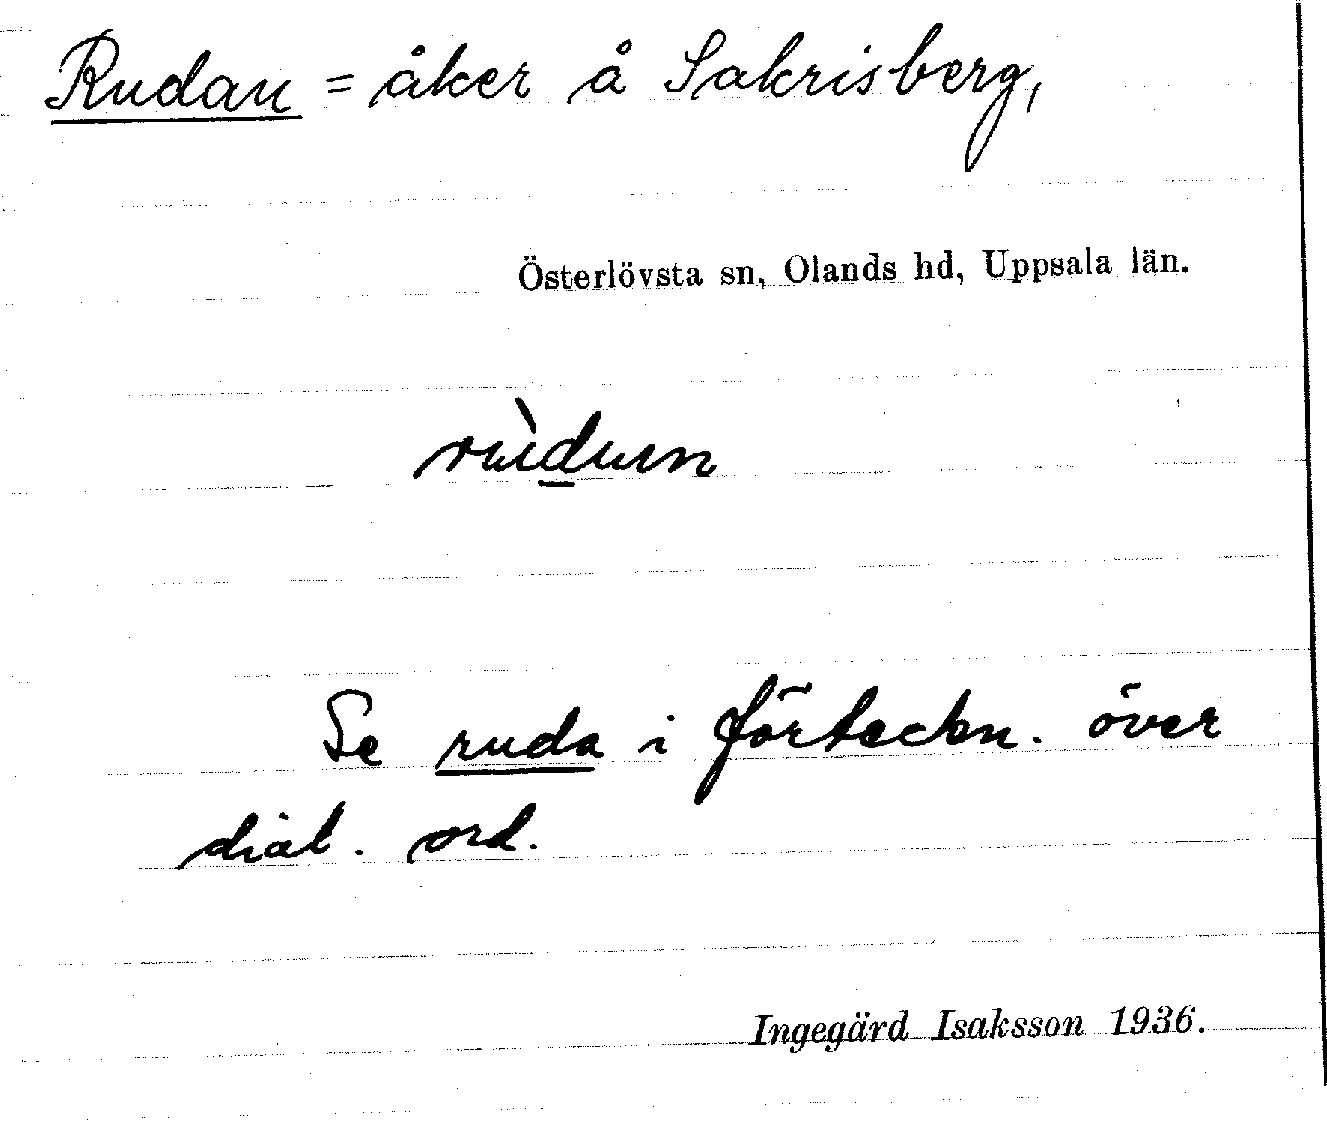 Rudan = åker å Sakrisberg,
Österlövsta sn, Olands hd, Uppsala län.
Se ruda i förteckn. över
dial. ord.
Ingegärd Isaksson 1936.